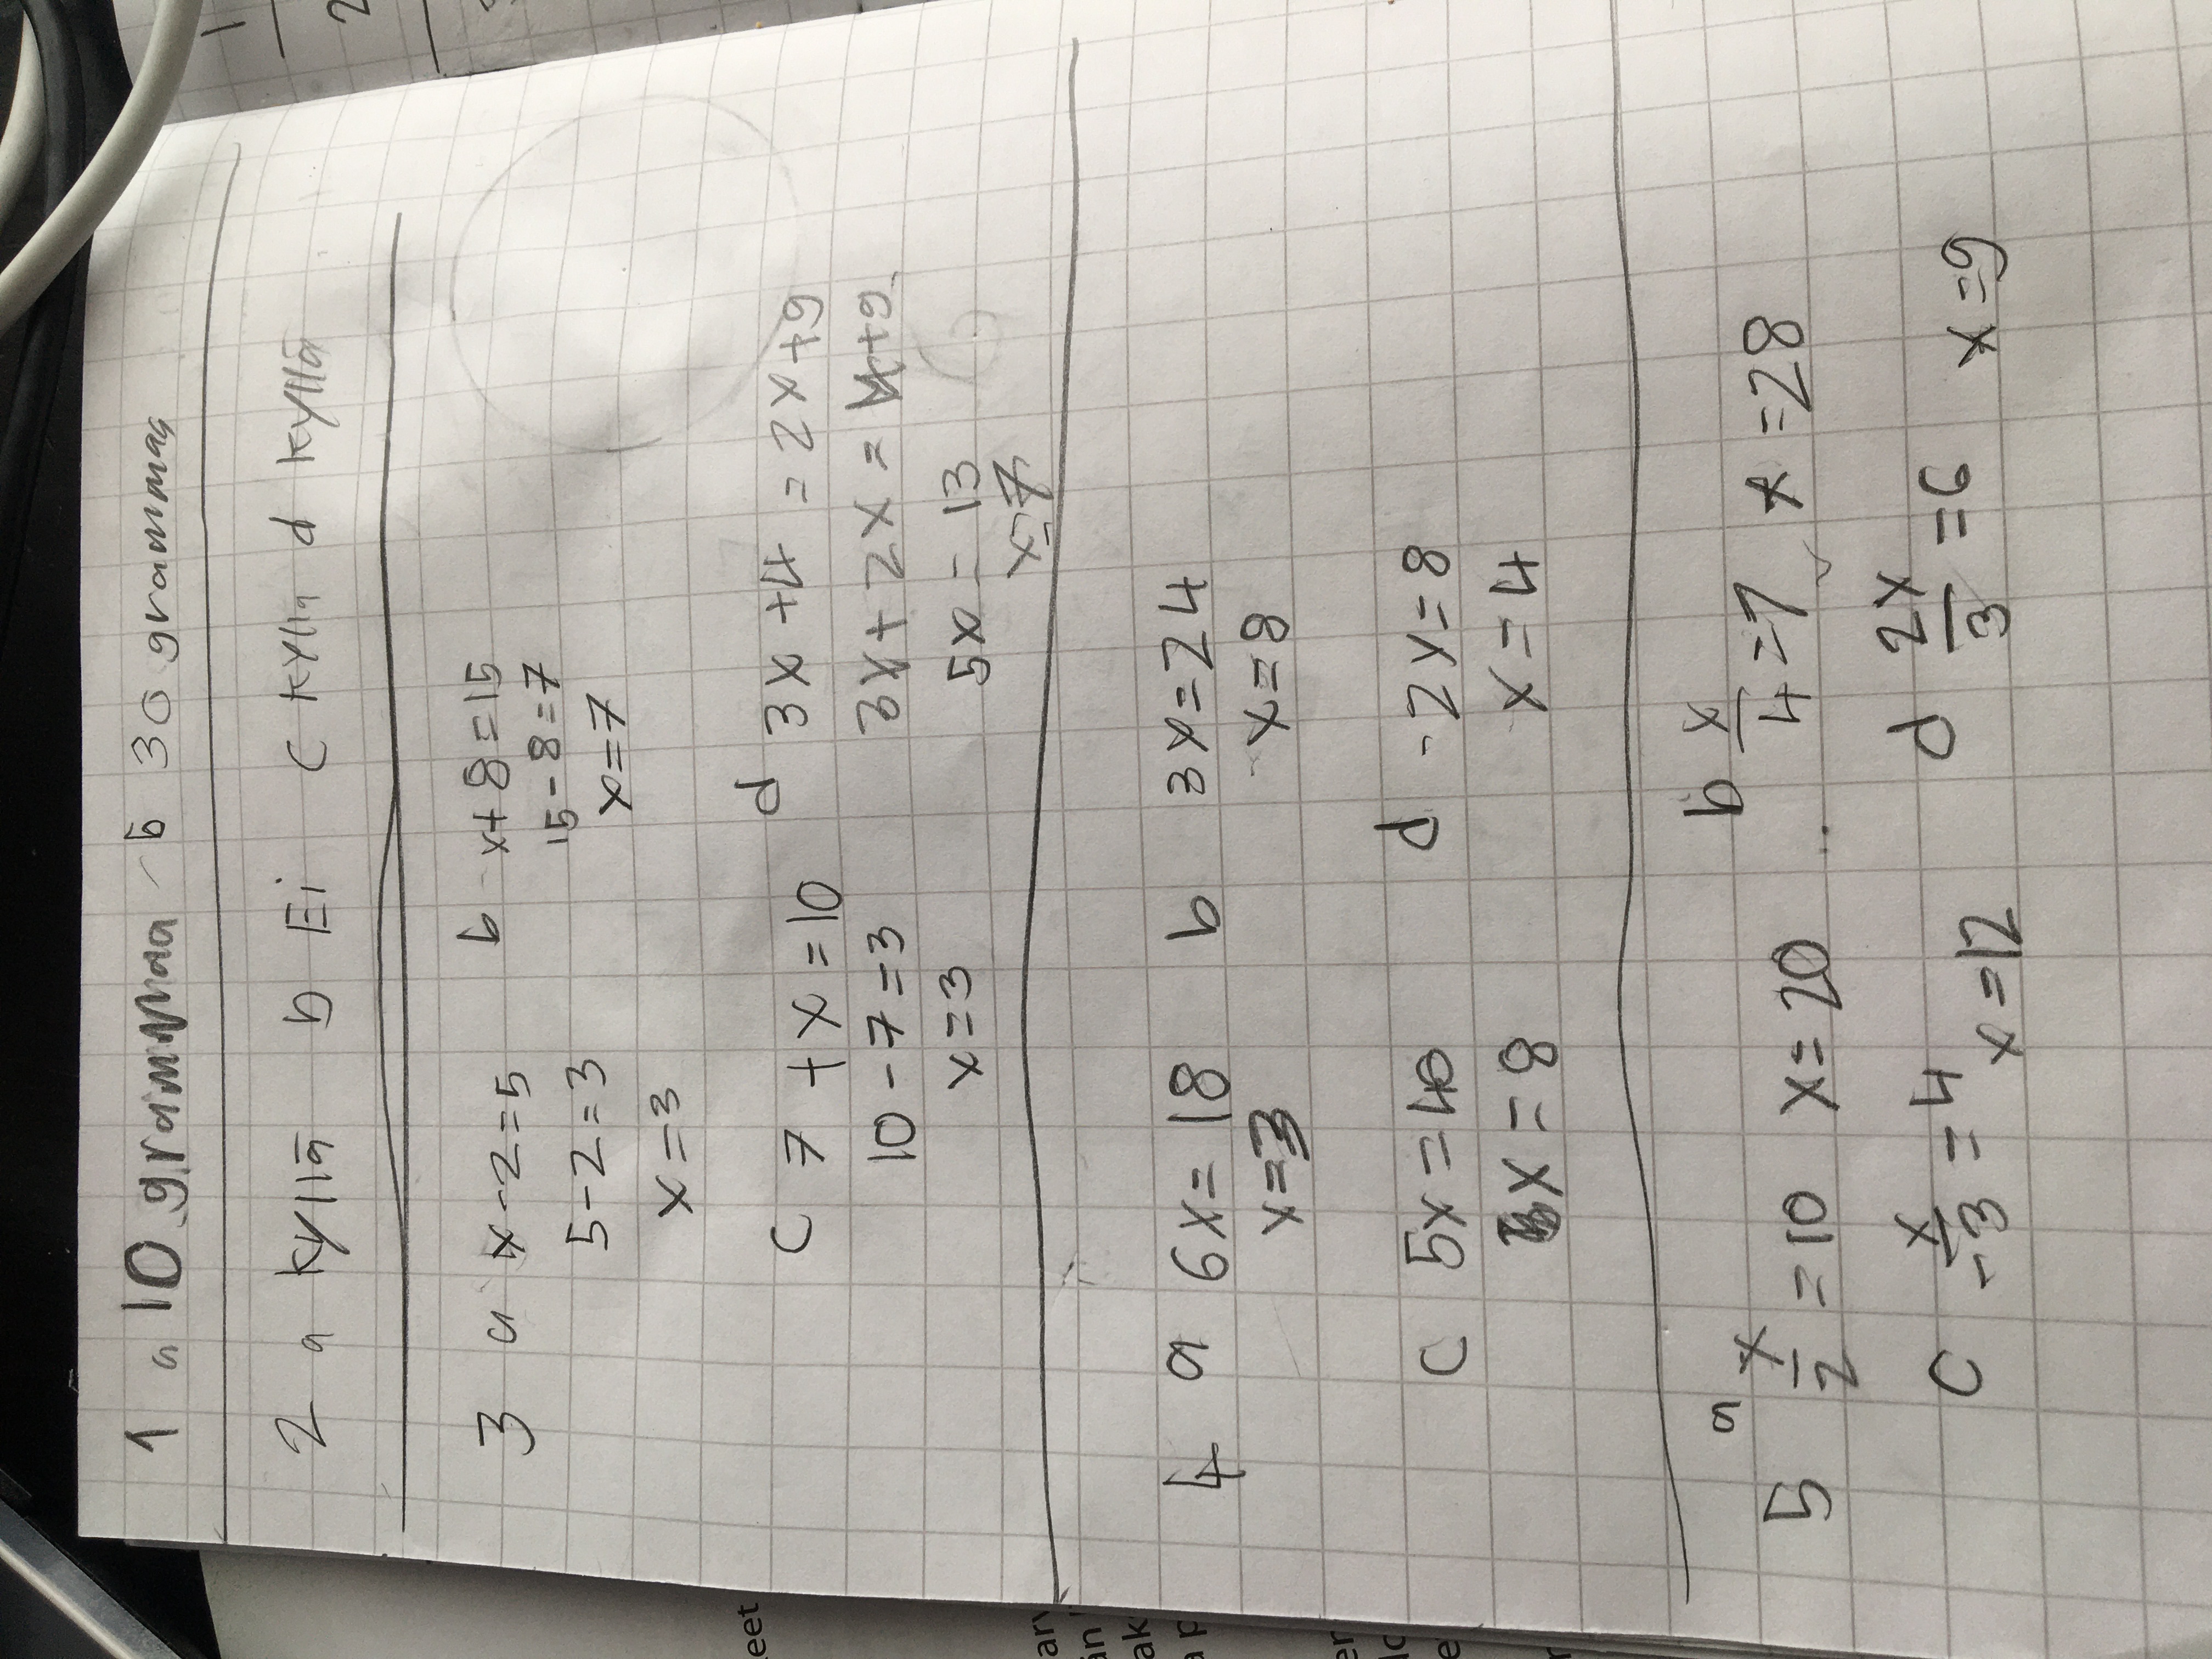 1 a 10 grammaa b 30 grammaa
2 a kyllä b Ei c kyllä d kyllä
3 a x-2=5 b x+8=15
5-2=3 15-8=7
x=3 x=7
c 7+x=10 d 3x+4=2x+9
10-7=3 3x+2x=4+9
x=3 5x=13
x=7
4 a 6x=18 b 3x=24
x=3 x=8
c 5x=40 d -2x=8
x=8 x=4
5 a x/2=10 x=20 b x/4=7 x=28
c x/-3=4 x=12 d 2x/3=6 x=9